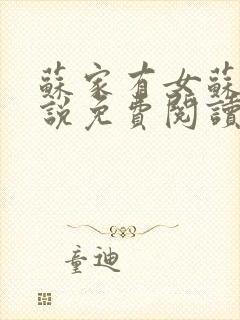 蘇家有女蘇
說免費閱讀
童迪